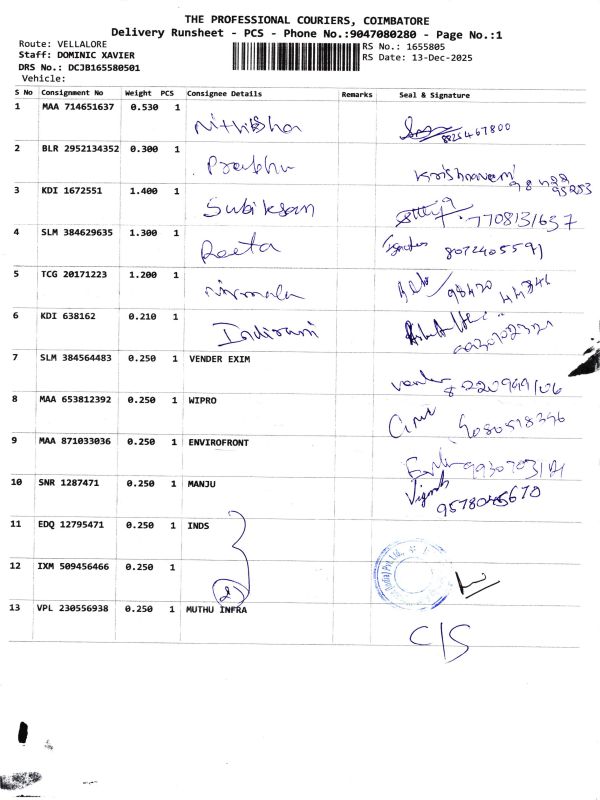 THE PROFESSIONAL COURIERS, COIMBATORE
Delivery Runsheet - PCS - Phone No.:9047080280 - Page No.:1
Route: VELLALORE
Staff: DOMINIC XAVIER
DRS No.: DCJB165580501
Vehicle:
RS No.: 1655805
RS Date: 13-Dec-2025
S No Consignment No Weight PCS Consignee Details Remarks Seal & Signature
1 MAA 714651637 0.530 1 Nithibha
2 BLR 2952134352 0.300 1 Prabhu Krishnaveni
3 KDI 1672551 1.400 1 Subiksan 7708131637
4 SLM 384629635 1.300 1 Reeta 8072405591
5 TCG 20171223 1.200 1 Nirmala
6 KDI 638162 0.210 1 Indirani
7 SLM 384564483 0.250 1 VENDER EXIM 8220949106
8 MAA 653812392 0.250 1 WIPRO 9080518396
9 MAA 871033036 0.250 1 ENVIROFRONT
10 SNR 1287471 0.250 1 MANJU 9578045670
11 EDQ 12795471 0.250 1 INDS
12 IXM 509456466 0.250 1
13 VPL 230556938 0.250 1 MUTHU INFRA C/S